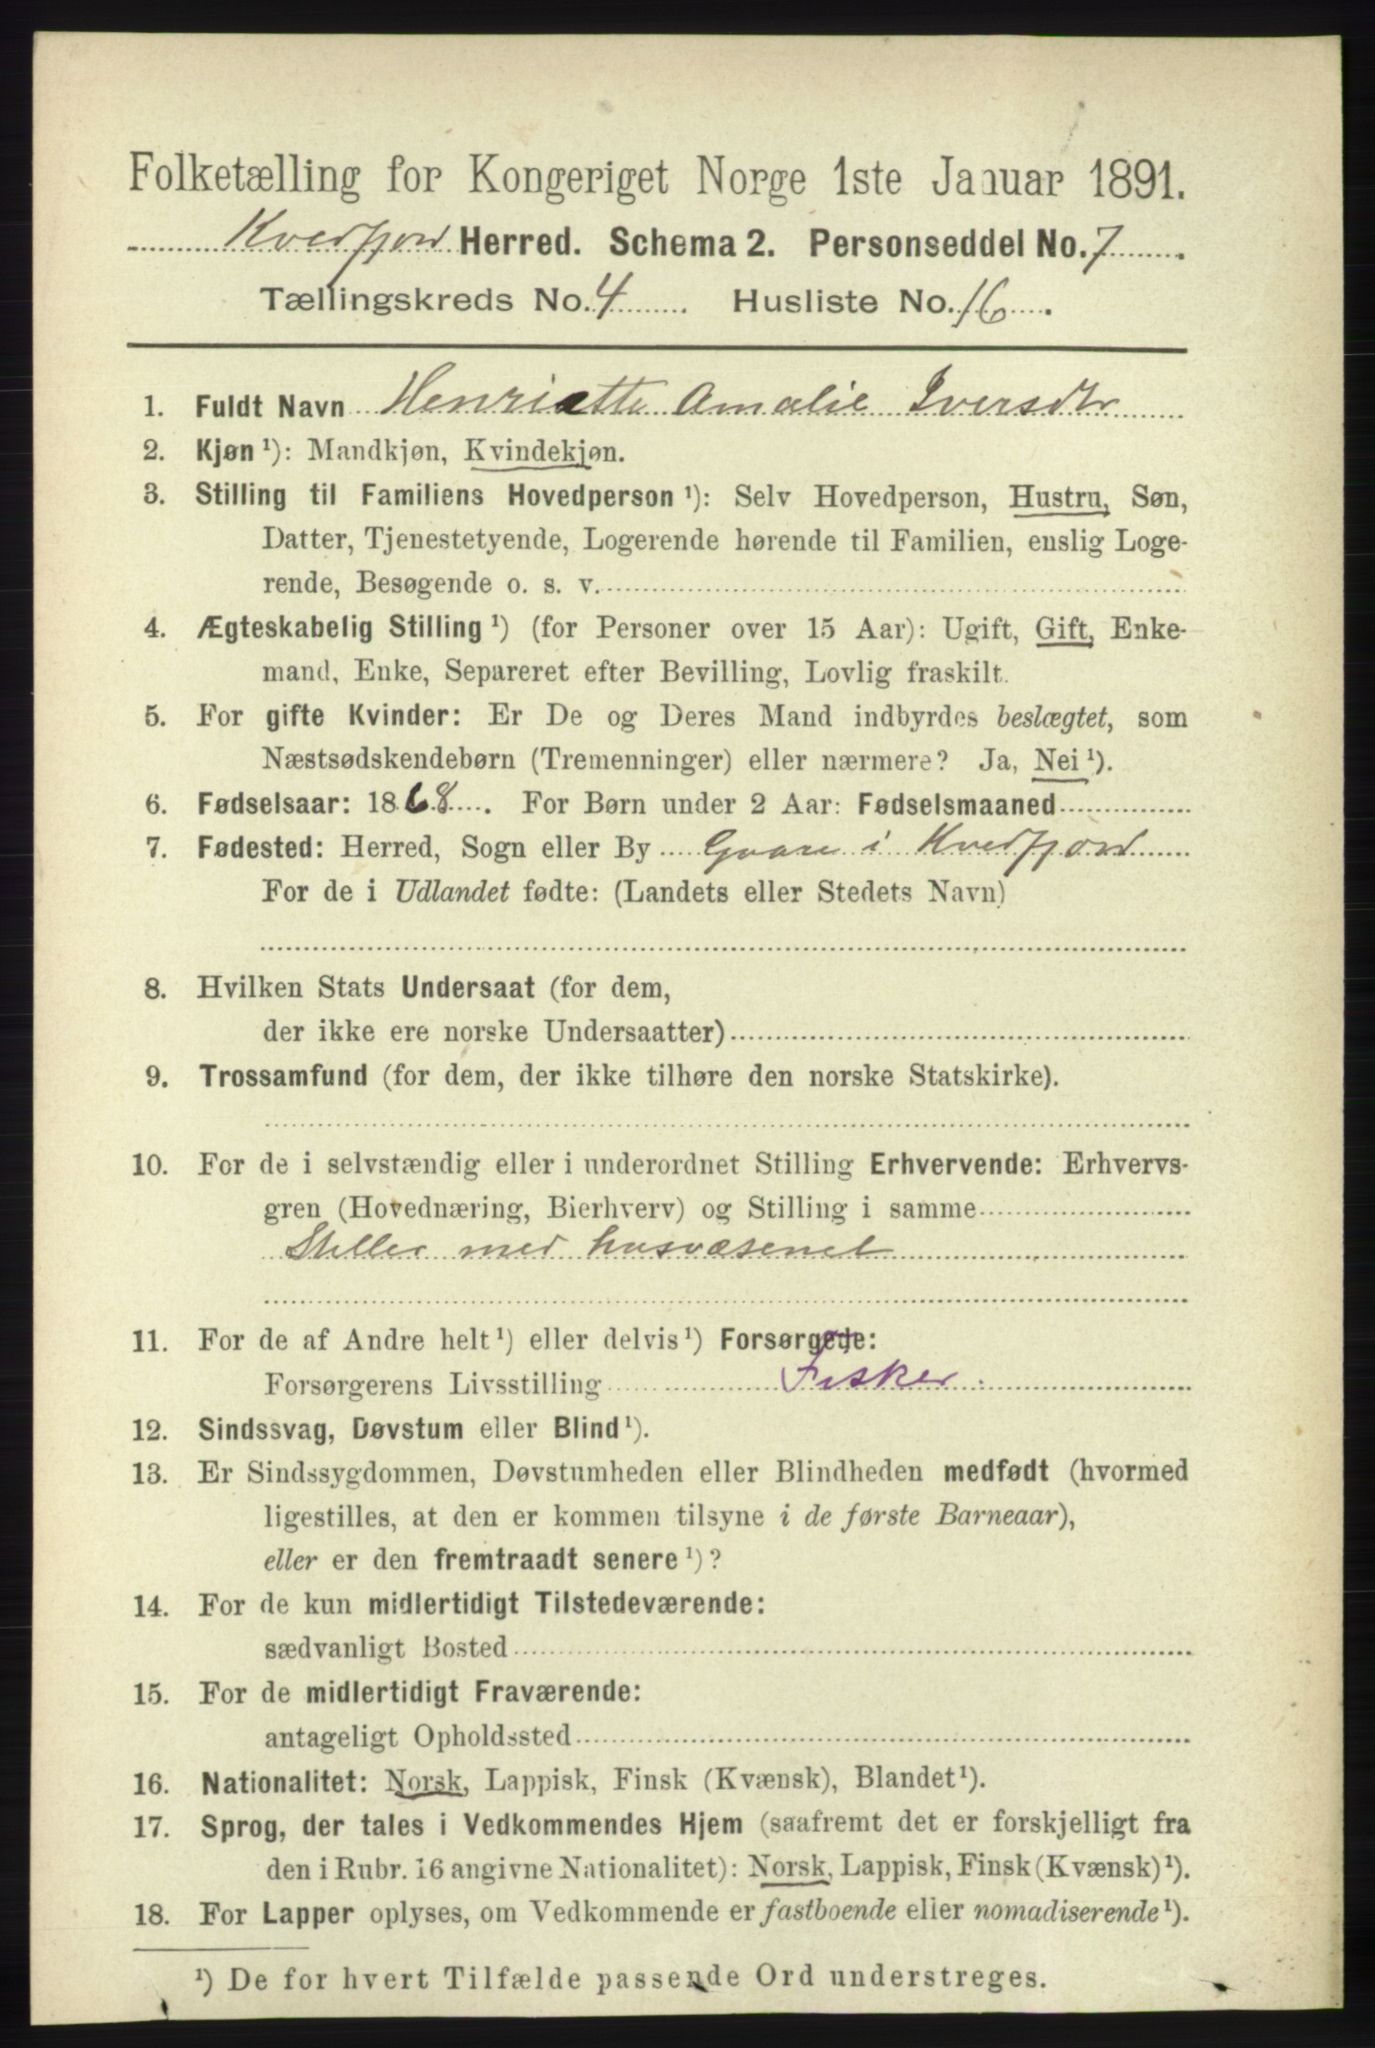 Folketælling for Kongeriget Norge 1ste Januar 1891.
Kvedfjord Herred. Schema 2. Personseddel No. 7.
Tællingskreds No. 4. Husliste No. 16.
1. Fuldt Navn Henriette Amalie Iversdtr
2. Kjøn ¹): Mandkjøn, Kvindekjøn.
3. Stilling til Familiens Hovedperson ¹): Selv Hovedperson, Hustru, Søn,
Datter, Tjenestetyende, Logerende hørende til Familien, enslig Loge-
rende, Besøgende o. s. v.
4. Ægteskabelig Stilling ¹) (for Personer over 15 Aar): Ugift, Gift, Enke-
mand, Enke, Separeret efter Bevilling, Lovlig fraskilt.
5. For gifte Kvinder: Er De og Deres Mand indbyrdes beslægtet, som
Næstsødskendebørn (Tremenninger) eller nærmere? Ja, Nei ¹).
6. Fødselsaar: 1868. For Børn under 2 Aar: Fødselsmaaned
7. Fødested: Herred, Sogn eller By i Kvedfjord
For de i Udlandet fødte: (Landets eller Stedets Navn)
8. Hvilken Stats Undersaat (for dem,
der ikke ere norske Undersaatter)
9. Trossamfund (for dem, der ikke tilhøre den norske Statskirke).
10. For de i selvstændig eller i underordnet Stilling Erhvervende: Erhvervs-
gren (Hovednæring, Bierhverv) og Stilling i samme
Steller med husvæsenet
11. For de af Andre helt ¹) eller delvis ¹) Forsørgede:
Forsørgerens Livsstilling Fisker.
12. Sindssvag, Døvstum eller Blind ¹).
13. Er Sindssygdommen, Døvstumheden eller Blindheden medfødt (hvormed
ligestilles, at den er kommen tilsyne i de første Barneaar),
eller er den fremtraadt senere ¹)?
14. For de kun midlertidigt Tilstedeværende:
sædvanligt Bosted
15. For de midlertidigt Fraværende:
antageligt Opholdssted
16. Nationalitet: Norsk, Lappisk, Finsk (Kvænsk), Blandet ¹).
17. Sprog, der tales i Vedkommendes Hjem (saafremt det er forskjelligt fra
den i Rubr. 16 angivne Nationalitet): Norsk, Lappisk, Finsk (Kvænsk) ¹).
18. For Lapper oplyses, om Vedkommende er fastboende eller nomadiserende ¹).
¹) De for hvert Tilfælde passende Ord understreges.